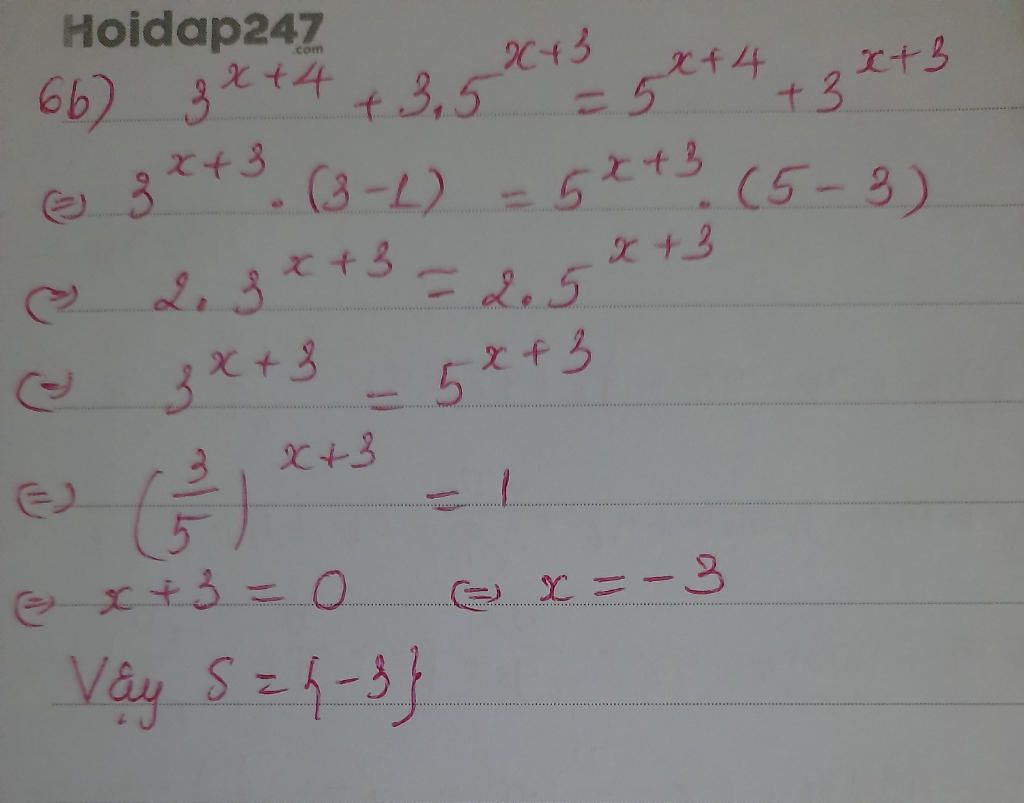 Hoidap247
.com
6b) 3^{x+4} + 3.5^{x+3} = 5^{x+4} + 3^{x+3}
⇔ 3^{x+3} . (3-1) = 5^{x+3} . (5-3)
⇔ 2.3^{x+3} = 2.5^{x+3}
⇔ 3^{x+3} = 5^{x+3}
⇔ (3/5)^{x+3} = 1
⇔ x+3 = 0 ⇔ x = -3
Vậy S = {-3}